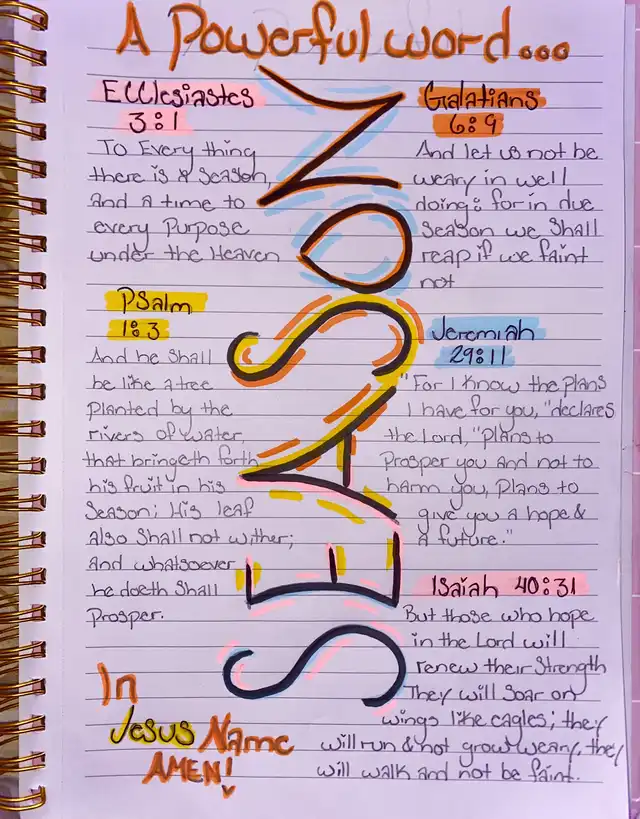 A Powerful word...
Ecclesiastes
3:1
To Every thing
there is a season,
and a time to
every Purpose
under the Heaven
Psalm
1:3
And he Shall
be like a tree
Planted by the
rivers of water,
that bringeth forth
his fruit in his
Season; His leaf
also Shall not wither;
and whatsoever
he doeth Shall
Prosper.
In
Jesus Name
AMEN!
SEASON
Galatians
6:9
And let us not be
weary in well
doing: for in due
Season we Shall
reap if we faint
not
Jeremiah
29:11
"For I Know the Plans
I have for you, "declares
the Lord, "Plans to
Prosper you and not to
harm you, Plans to
give you a hope &
a future."
Isaiah 40:31
But those who hope
in the Lord will
renew their Strength
They will Soar on
wings like eagles; they
will run & not grow weary, they
will walk and not be faint.